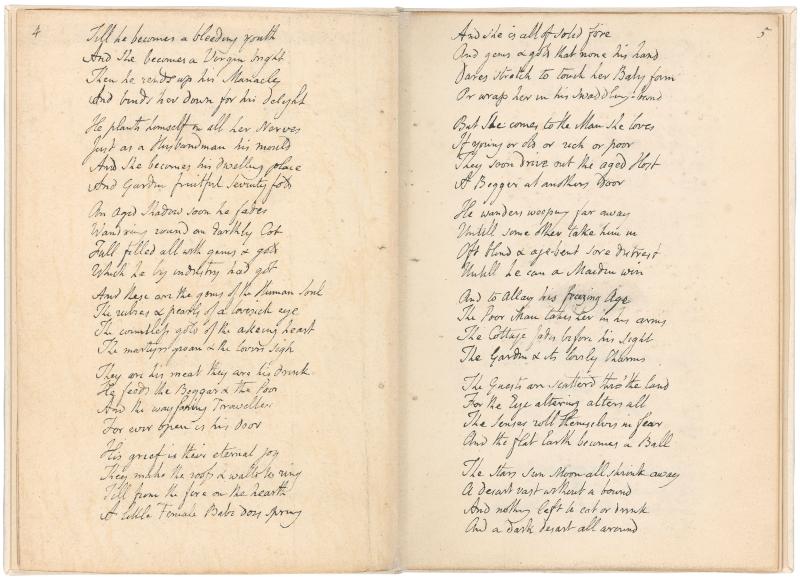 4
Till he becomes a bleeding youth
And She becomes a Virgin bright
Then he rends up his Manacles
And binds her down for his delight
He plants himself in all her Nerves
Just as a Husbandman his mould
And She becomes his dwelling place
And Garden fruitful Seventy fold
An aged Shadow soon he fades
Wandring round an Earthly Cot
Full filled all with gems & gold
Which he by industry had got
And these are the gems of the Human Soul
The rubies & pearls of a lovesick eye
The countless gold of the akeing heart
The martyrs groan & the lovers sigh
They are his meat they are his drink
He feeds the Beggar & the Poor
And the wayfaring Traveller
For ever open is his Door
His grief is their eternal joy
They make the roofs & walls to ring
Till from the fire on the hearth
A little Female Babe does spring
5
And she is all of solid fire
And gems & gold that none his hand
Dares stretch to touch her Baby form
Or wrap her in his swaddling-band
But She comes to the Man she loves
If young or old or rich or poor
They soon drive out the aged Host
A Begger at anothers Door
He wanders weeping far away
Untill some other take him in
Oft blind & age-bent sore distrest
Untill he can a Maiden win
And to Allay his freezing Age
The Poor Man takes her in his arms
The Cottage fades before his Sight
The Garden & its lovely Charms
The Guests are scatterd thro' the land
For the Eye altering alters all
The Senses roll themselves in fear
And the flat Earth becomes a Ball
The Stars Sun Moon all shrink away
A desart vast without a bound
And nothing left to eat or drink
And a dark desart all around